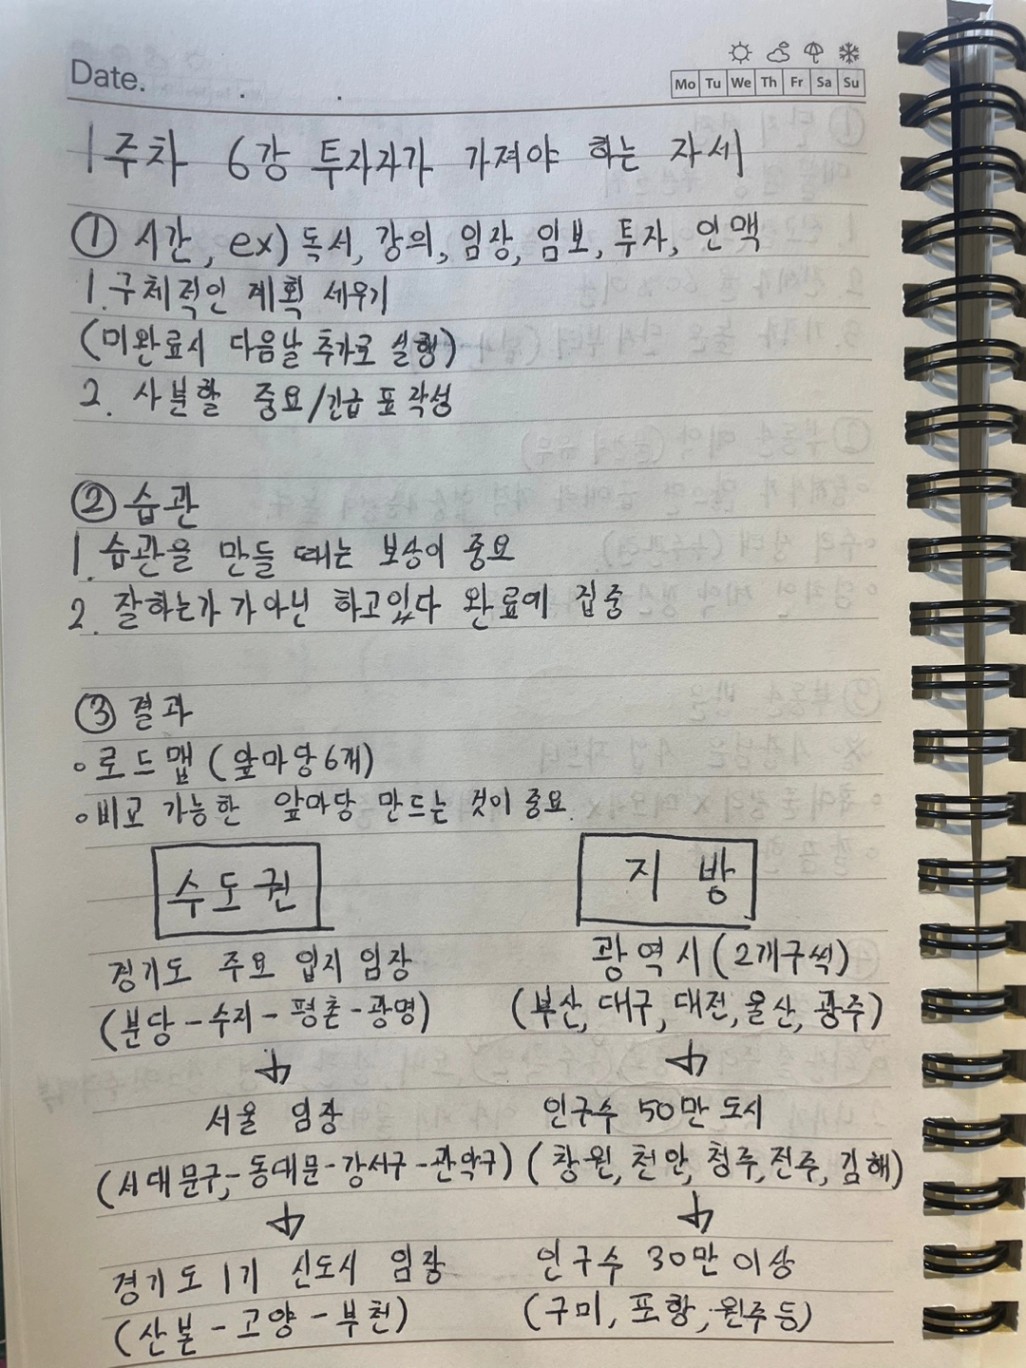 Date. . .
Mo Tu We Th Fr Sa Su
1주차 6강 투자자가 가져야 하는 자세
① 시간, ex) 독서, 강의, 임장, 임보, 투자, 인맥
1. 구체적인 계획 세우기
(미완료시 다음날 추가로 실행)
2. 사분할 중요/긴급 표 작성
② 습관
1. 습관을 만들 때는 보상이 중요
2. 잘하는가가 아닌 하고있다 완료에 집중
③ 결과
◦ 로드맵 (앞마당 6개)
◦ 비교 가능한 앞마당 만드는 것이 중요.
수도권
경기도 주요 입지 임장
(분당-수지-평촌-광명)
↓
서울 임장
(서대문구-동대문-강서구-관악구)
↓
경기도 1기 신도시 임장
(산본-고양-부천)
지방
광역시 (2개구씩)
(부산, 대구, 대전, 울산, 광주)
↓
인구수 50만 도시
(창원, 천안, 청주, 전주, 김해)
↓
인구수 30만 이상
(구미, 포항, 원주 등)